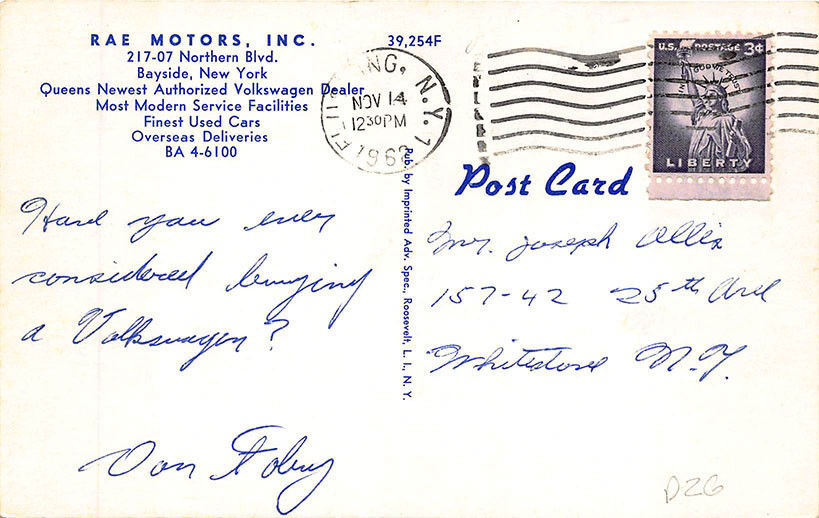 RAE MOTORS, INC.
217-07 Northern Blvd.
Bayside, New York
Queens Newest Authorized Volkswagen Dealer
Most Modern Service Facilities
Finest Used Cars
Overseas Deliveries
BA 4-6100
39,254F
FLUSHING, N.Y. 1
NOV 14
1230PM
U.S. POSTAGE 3¢
IN GOD WE TRUST
LIBERTY
Post Card
Have you ever
considered buying
a Volkswagen?
Don
Pub. by Imprinted Adv. Spec., Roosevelt, L. I., N. Y.
Mr. Joseph Ollis
157-42 25th Ave
Whitestone N.Y.
D26